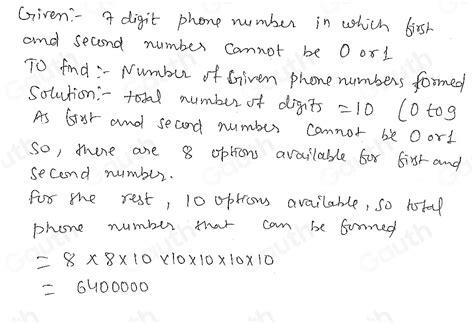 Given:- 7 digit phone number in which first
and second number cannot be 0 or 1
TO find :- Number of Given phone numbers formed
Solution:- total number of digits = 10 (0 to 9
As first and second number cannot be 0 or 1
So, there are 8 options available for first and
second number.
for the rest, 10 options available, so total
phone number that can be formed
= 8 x 8 x 10 x 10 x 10 x 10 x 10
= 6400000